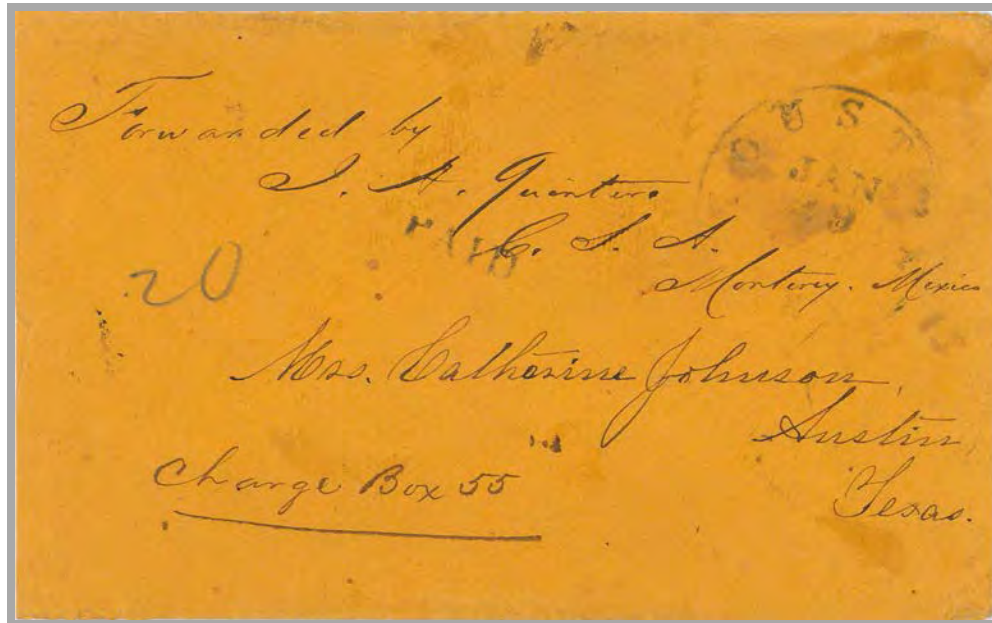 Forwanded by
J. A. Quintero
C. S. A.
Monterey. Mexico
OUST
JAN
PAID
20
Mrs. Catherine Johnson,
Austin,
Texas.
Charge Box 55